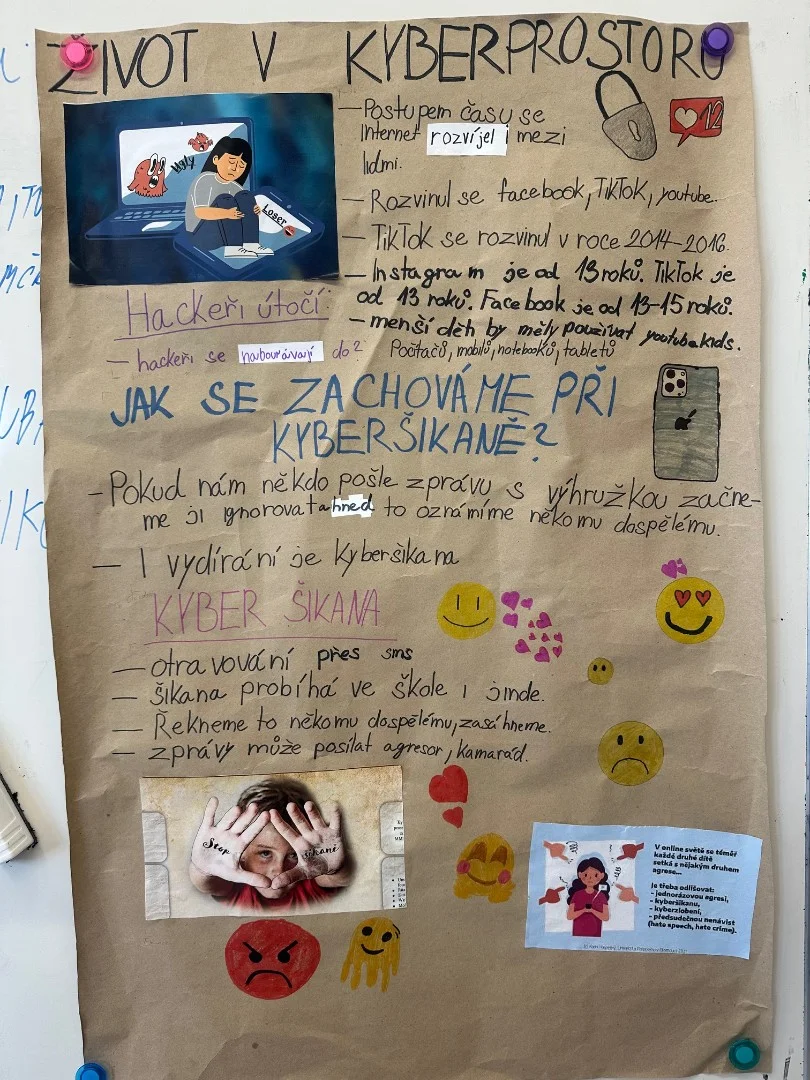 ŽIVOT V KYBERPROSTORU
Ugly
Loser
12
– Postupem času se
Internet rozvíjel i mezi
lidmi.
– Rozvinul se facebook, TikTok, youtube.
– TikTok se rozvinul v roce 2014–2016.
– Instagram je od 13 roků. TikTok je
od 13 roků. Facebook je od 13–15 roků.
– menší děti by měly používat youtubekids.
Hackeři útočí:
– hackeři se nabourávají do?
Počítačů, mobilů, notebooků, tabletů
JAK SE ZACHOVÁME PŘI
KYBERŠIKANĚ?
– Pokud nám někdo pošle zprávu s výhružkou začne-
me ji ignorovat ahned to oznámíme někomu dospělému.
– I vydírání je kyberšikana
KYBER ŠIKANA
– otravování přes sms
– šikana probíhá ve škole i jinde.
– Řekneme to někomu dospělému, zasáhneme.
– zprávy může posílat agresor, kamarád.
Stop šikaně
V online světě se téměř
každé druhé dítě
setká s nějakým druhem
agrese...
Je třeba odlišovat:
- jednorázovou agresi,
- kyberšikanu,
- kyberzlobení,
- předsudečnou nenávist
(hate speech, hate crime).